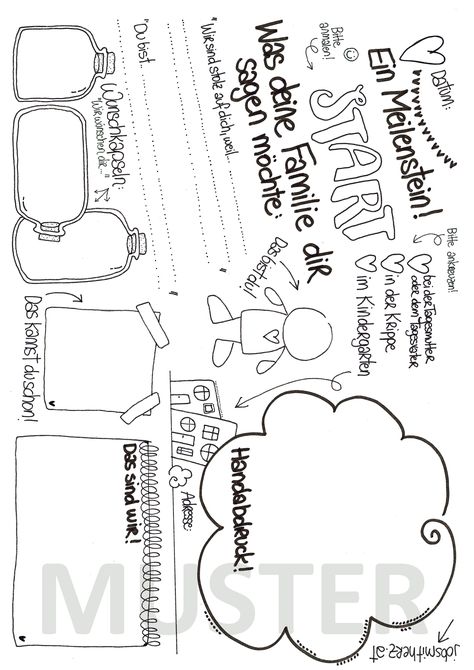 Datum:
Ein Meilenstein!
Bitte ankreuzen!
Bitte
anmalen!
START
bei der Tagesmutter
oder dem Tagesvater
in der Krippe
im Kindergarten
Was deine Familie dir
sagen möchte:
"Wir sind stolz auf dich, weil...
"
"Du bist...
"
Das bist du!
Wunschkapseln:
"Wir wünschen dir..."
Das kannst du schon!
Handabdruck!
Adresse:
Das sind wir!
jobsmitherz.at
MUSTER